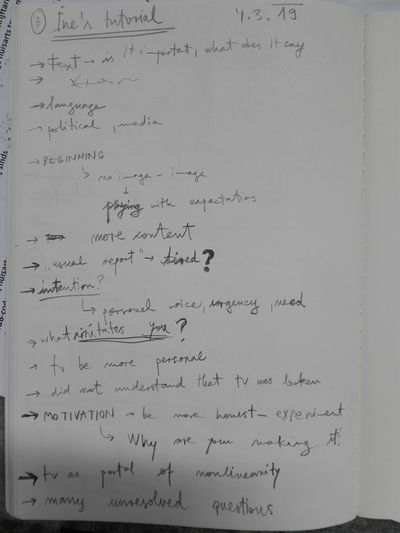 ③ Ine's tutorial 4.3.19
→ text → is it important, what does it say
→
→ language
→ political, media
→ BEGINNING
no image - image
playing with expectations
→ more content
→ „usual report" → tired?
→ intention?
↳ personal voice, urgency, need
→ what irritates you?
→ to be more personal
→ did not understand that tv was broken
→ MOTIVATION → be more honest - experiment
↳ Why are you making it?
→ tv as portal of nonlinearity
→ many unresolved questions